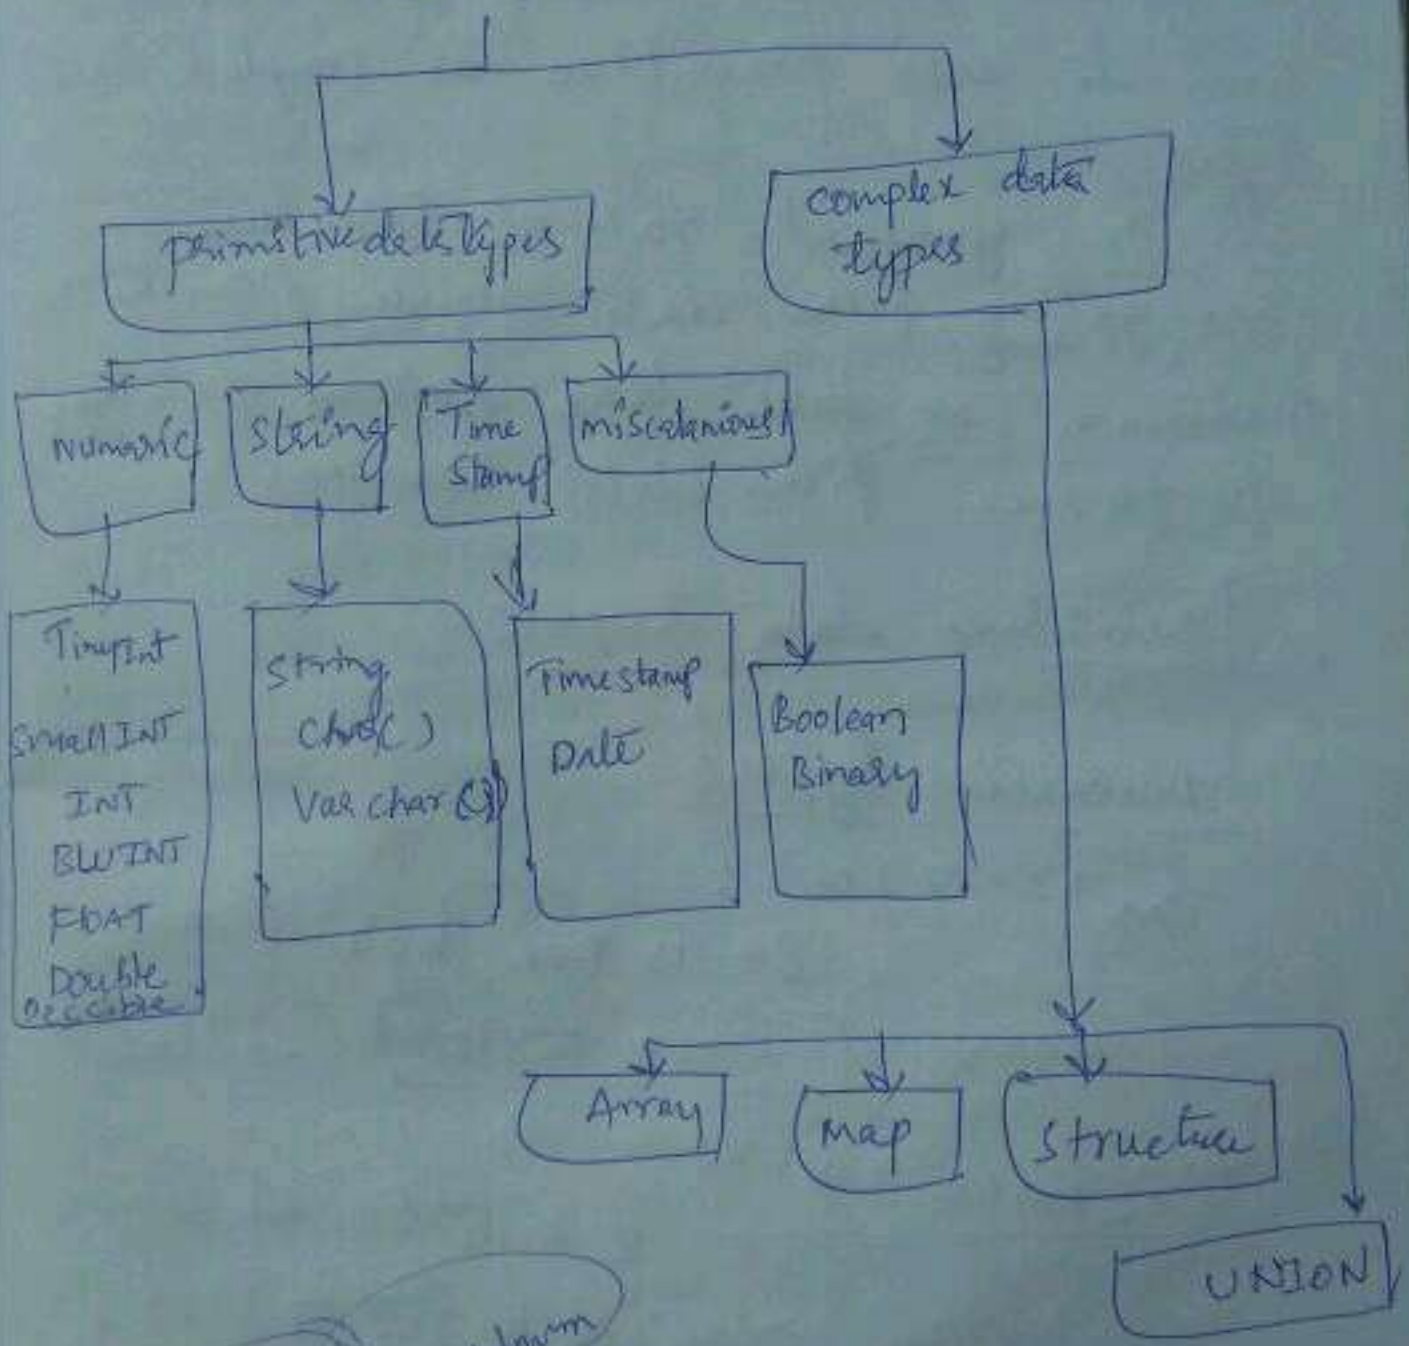 primitive datatypes
complex data
types
Numaric
String
Time
Stamp
miscelanious
TinyInt
SmallINT
INT
FLOAT
Double
String
Char( )
Varchar( )
Timestamp
Date
Boolean
Binary
Array
Map
Structure
UNION